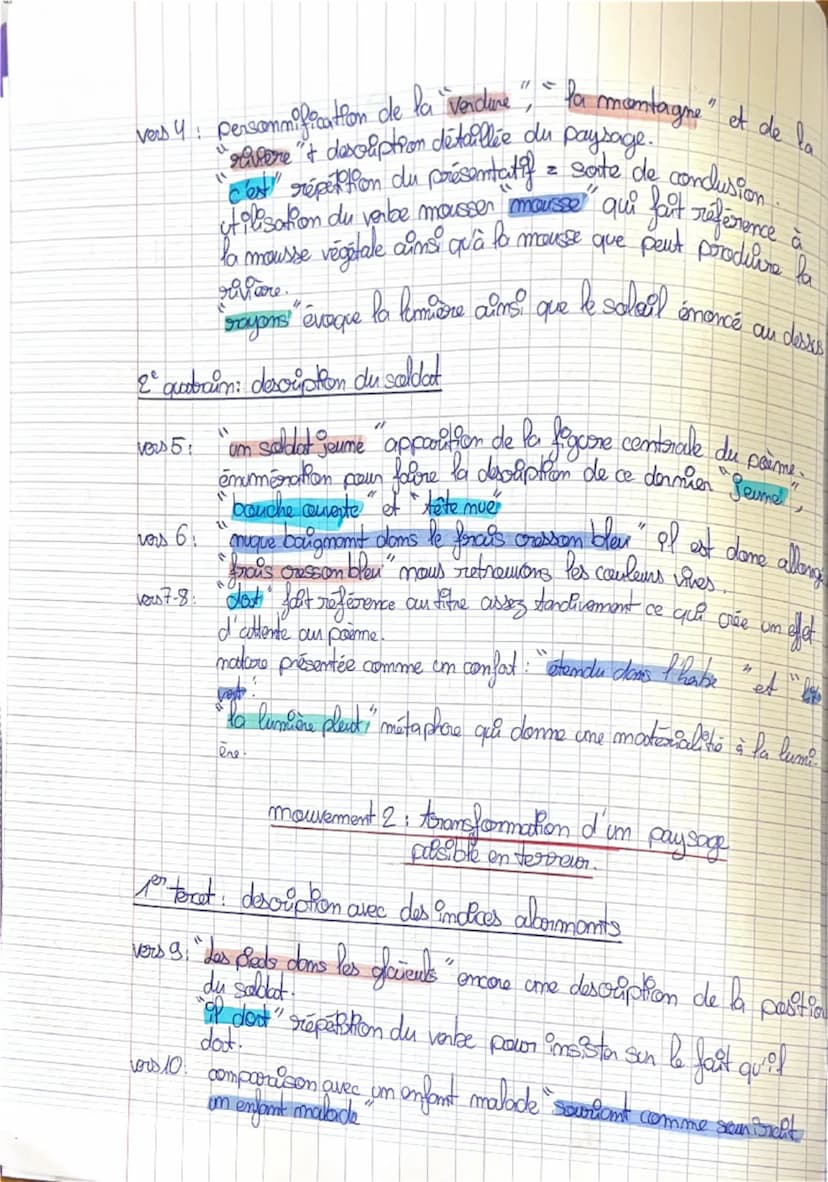 vers 4 : personnification de la "verdure", "la montagne" et de la
"rivière" + description détaillée du paysage.
"c'est" répétition du présentatif = sorte de conclusion.
utilisation du verbe mousser "mousse" qui fait référence à
la mousse végétale ainsi qu'à la mousse que peut produire la
rivière.
"rayons" évoque la lumière ainsi que le soleil énoncé au dessus
2e quatrain : description du soldat
vers 5 : "un soldat jeune" apparition de la figure centrale du poème.
énumération pour faire la description de ce dernier "Jeune",
"bouche ouverte" et "tête nue"
vers 6 : "nuque baignant dans le frais cresson bleu" il est donc allongé
"frais cresson bleu" nous retrouvons les couleurs vives.
vers 7-8 : "dort" fait référence au titre assez tardivement ce qui crée un effet
d'attente au poème.
nature présentée comme un confort : "étendu dans l'herbe" et "lit
vert".
"la lumière pleut," métaphore qui donne une matérialité à la lumi-
ère.
mouvement 2 : transformation d'un paysage
paisible en terreur.
1er tercet : description avec des indices alarmants
vers 9 : "Les pieds dans les glaïeuls" encore une description de la position
du soldat.
"il dort" répétition du verbe pour insister sur le fait qu'il
dort.
vers 10 : comparaison avec un enfant malade "souriant comme sourirait
un enfant malade"